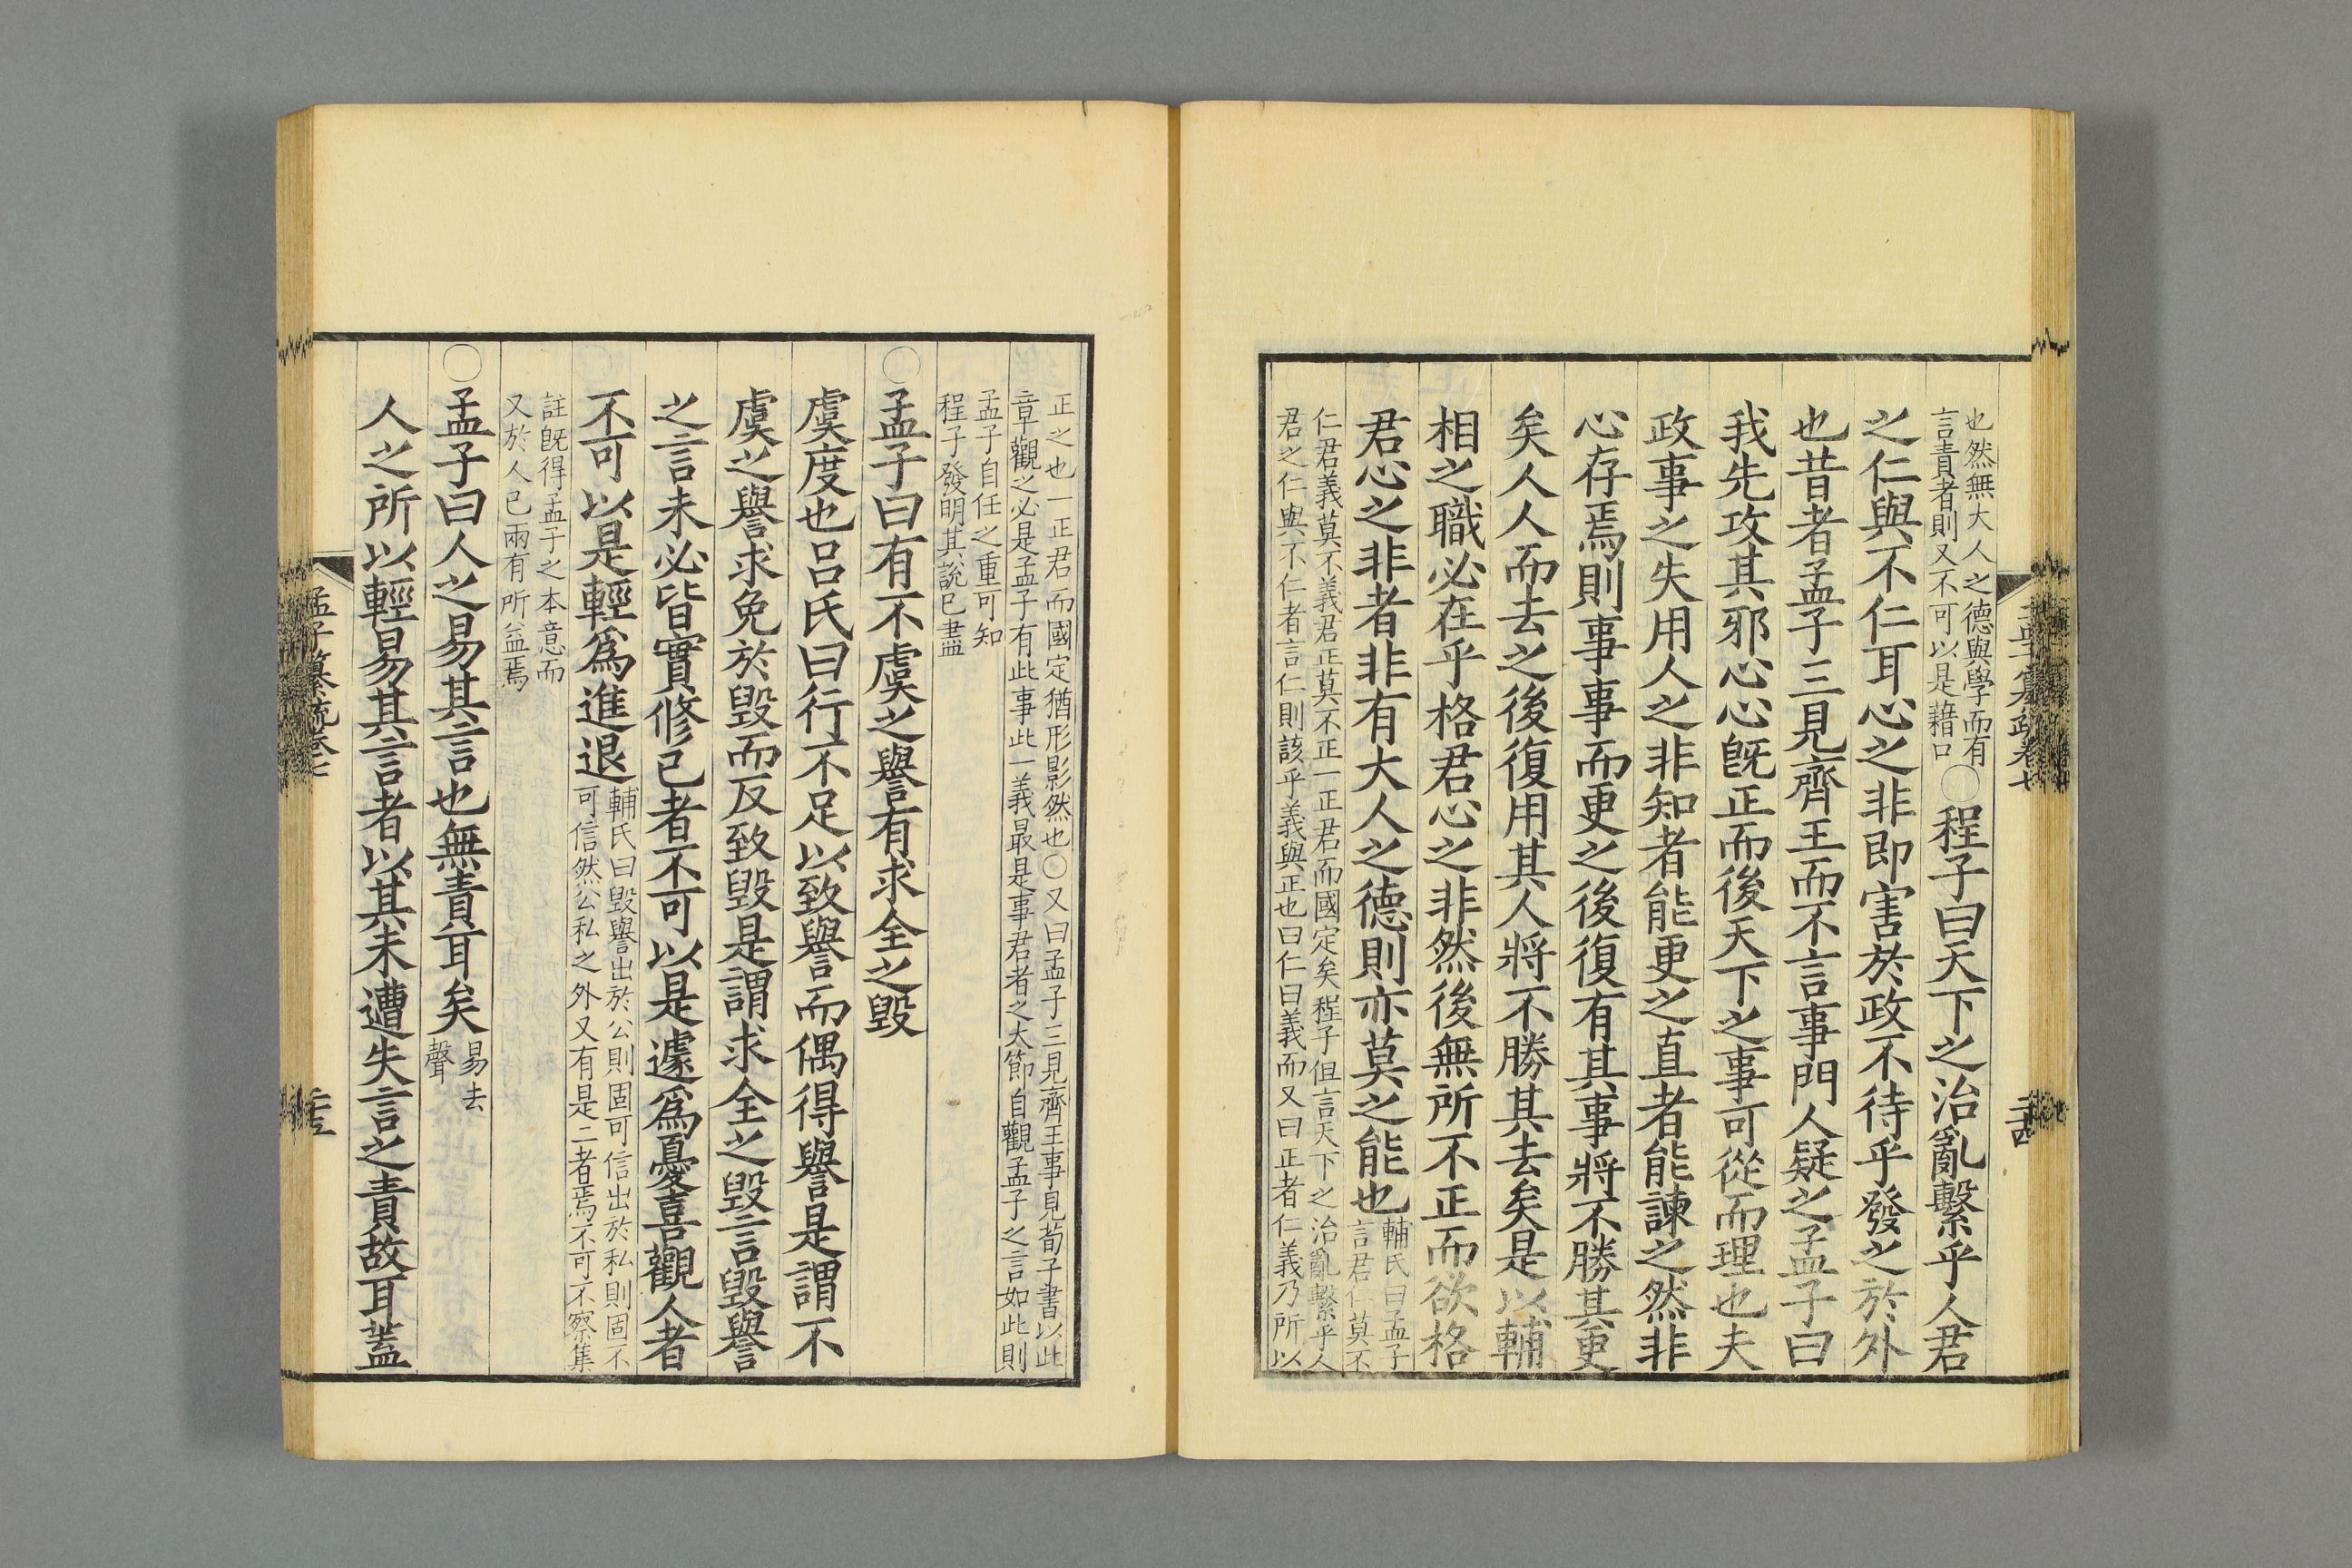 也然無大人之德與學而有
言責者則又不可以是藉口
〇程子曰天下之治亂繫乎人君
之仁與不仁耳心之非即害於政不待乎發之於外
也昔者孟子三見齊王而不言事門人疑之孟子曰
我先攻其邪心心旣正而後天下之事可從而理也夫
政事之失用人之非知者能更之直者能諫之然非
心存焉則事事而更之後復有其事將不勝其更
矣人人而去之後復用其人將不勝其去矣是以輔
相之職必在乎格君心之非然後無所不正而欲格
君心之非者非有大人之德則亦莫之能也
輔氏曰孟子
言君仁莫不
仁君義莫不義君正莫不正一正君而國定矣程子但言天下之治亂繫乎人
君之仁與不仁者言仁則該乎義與正也曰仁曰義而又曰正者仁義乃所以
正之也一正君而國定猶形影然也〇又曰孟子三見齊王事見荀子書以此
章觀之必是孟子有此事此一義最是事君者之大節自觀孟子之言如此則
孟子自任之重可知
程子發明其說已盡
〇孟子曰有不虞之譽有求全之毀
虞度也呂氏曰行不足以致譽而偶得譽是謂不
虞之譽求免於毀而反致毀是謂求全之毀言毀譽
之言未必皆實修己者不可以是遽爲憂喜觀人者
不可以是輕爲進退
輔氏曰毀譽出於公則固可信出於私則固不
可信然公私之外又有是二者焉不可不察集
註旣得孟子之本意而
又於人已兩有所益焉
〇孟子曰人之易其言也無責耳矣
易去
聲
人之所以輕易其言者以其未遭失言之責故耳蓋
孟子纂疏卷七